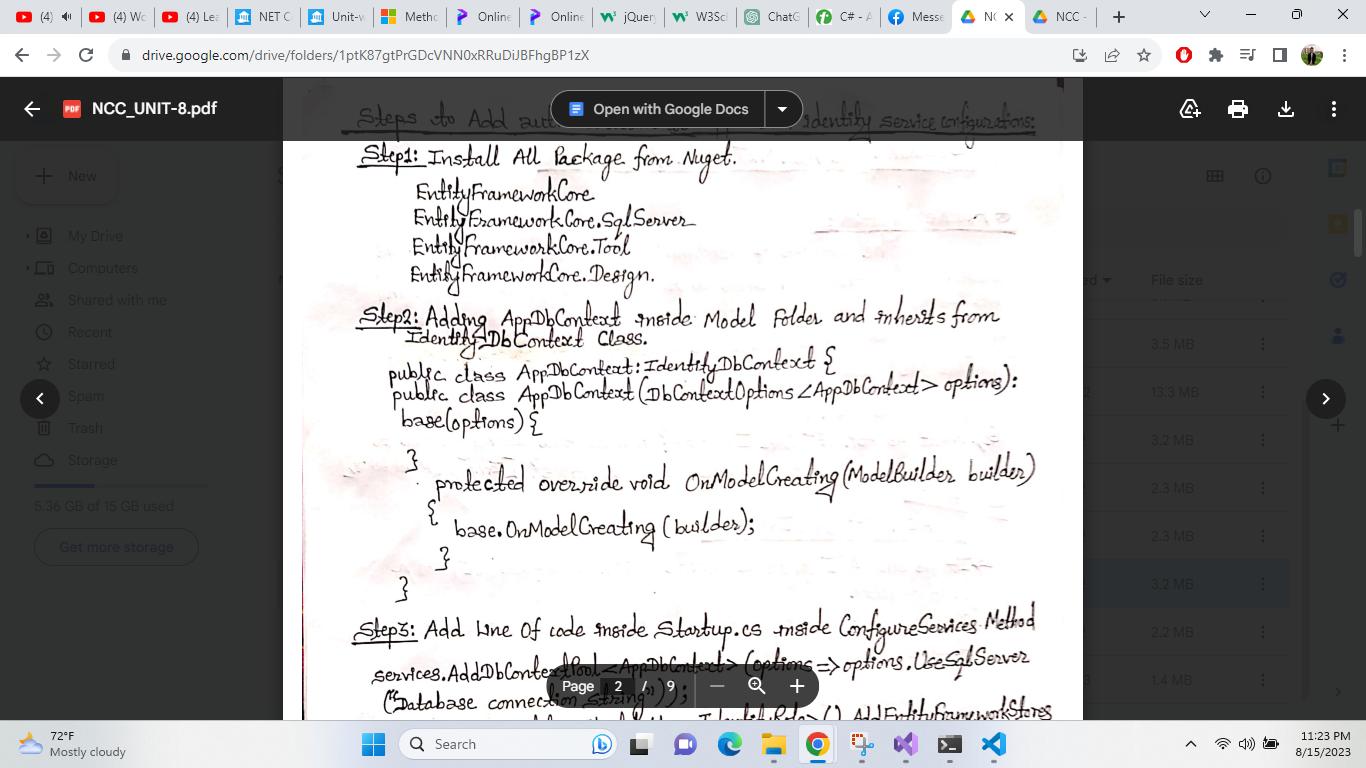 (4)
(4) Wo
(4) Lea
NET C
Unit-v
Metho
Online
Online
jQuery
W3Sci
ChatG
C# - A
Messe
NC
NCC -
drive.google.com/drive/folders/1ptK87gtPrGDcVNN0xRRuDiJBFhgBP1zX
PDF NCC_UNIT-8.pdf
Open with Google Docs
Steps to Add Identify service configurations:
Step1: Install All Package from Nuget.
EntityFrameworkCore
EntityFrameworkCore.SqlServer
EntityFrameworkCore.Tool
EntityFrameworkCore.Design.
Step2: Adding AppDbContext inside Model Folder and inherits from
IdentifyDbContext Class.
public class AppDbContext:IdentifyDbContext {
public class AppDbContext(DbContextOptions <AppDbContext> options):
base(options) {
}
protected override void OnModelCreating(ModelBuilder builder)
{
base.OnModelCreating (builder);
}
}
Step3: Add Line Of code inside Startup.cs inside ConfigureServices Method
services.AddDbContextPool <AppDbContext> (options => options.UseSqlServer
("Database connection string"));
IdentityRole>().AddEntityFrameworkStores
Page 2 / 9
New
My Drive
Computers
Shared with me
Recent
Starred
Spam
Trash
Storage
5.36 GB of 15 GB used
Get more storage
File size
3.5 MB
13.3 MB
3.2 MB
2.3 MB
2.3 MB
3.2 MB
2.2 MB
1.4 MB
72°F
Mostly cloudy
Search
11:23 PM
8/15/2023